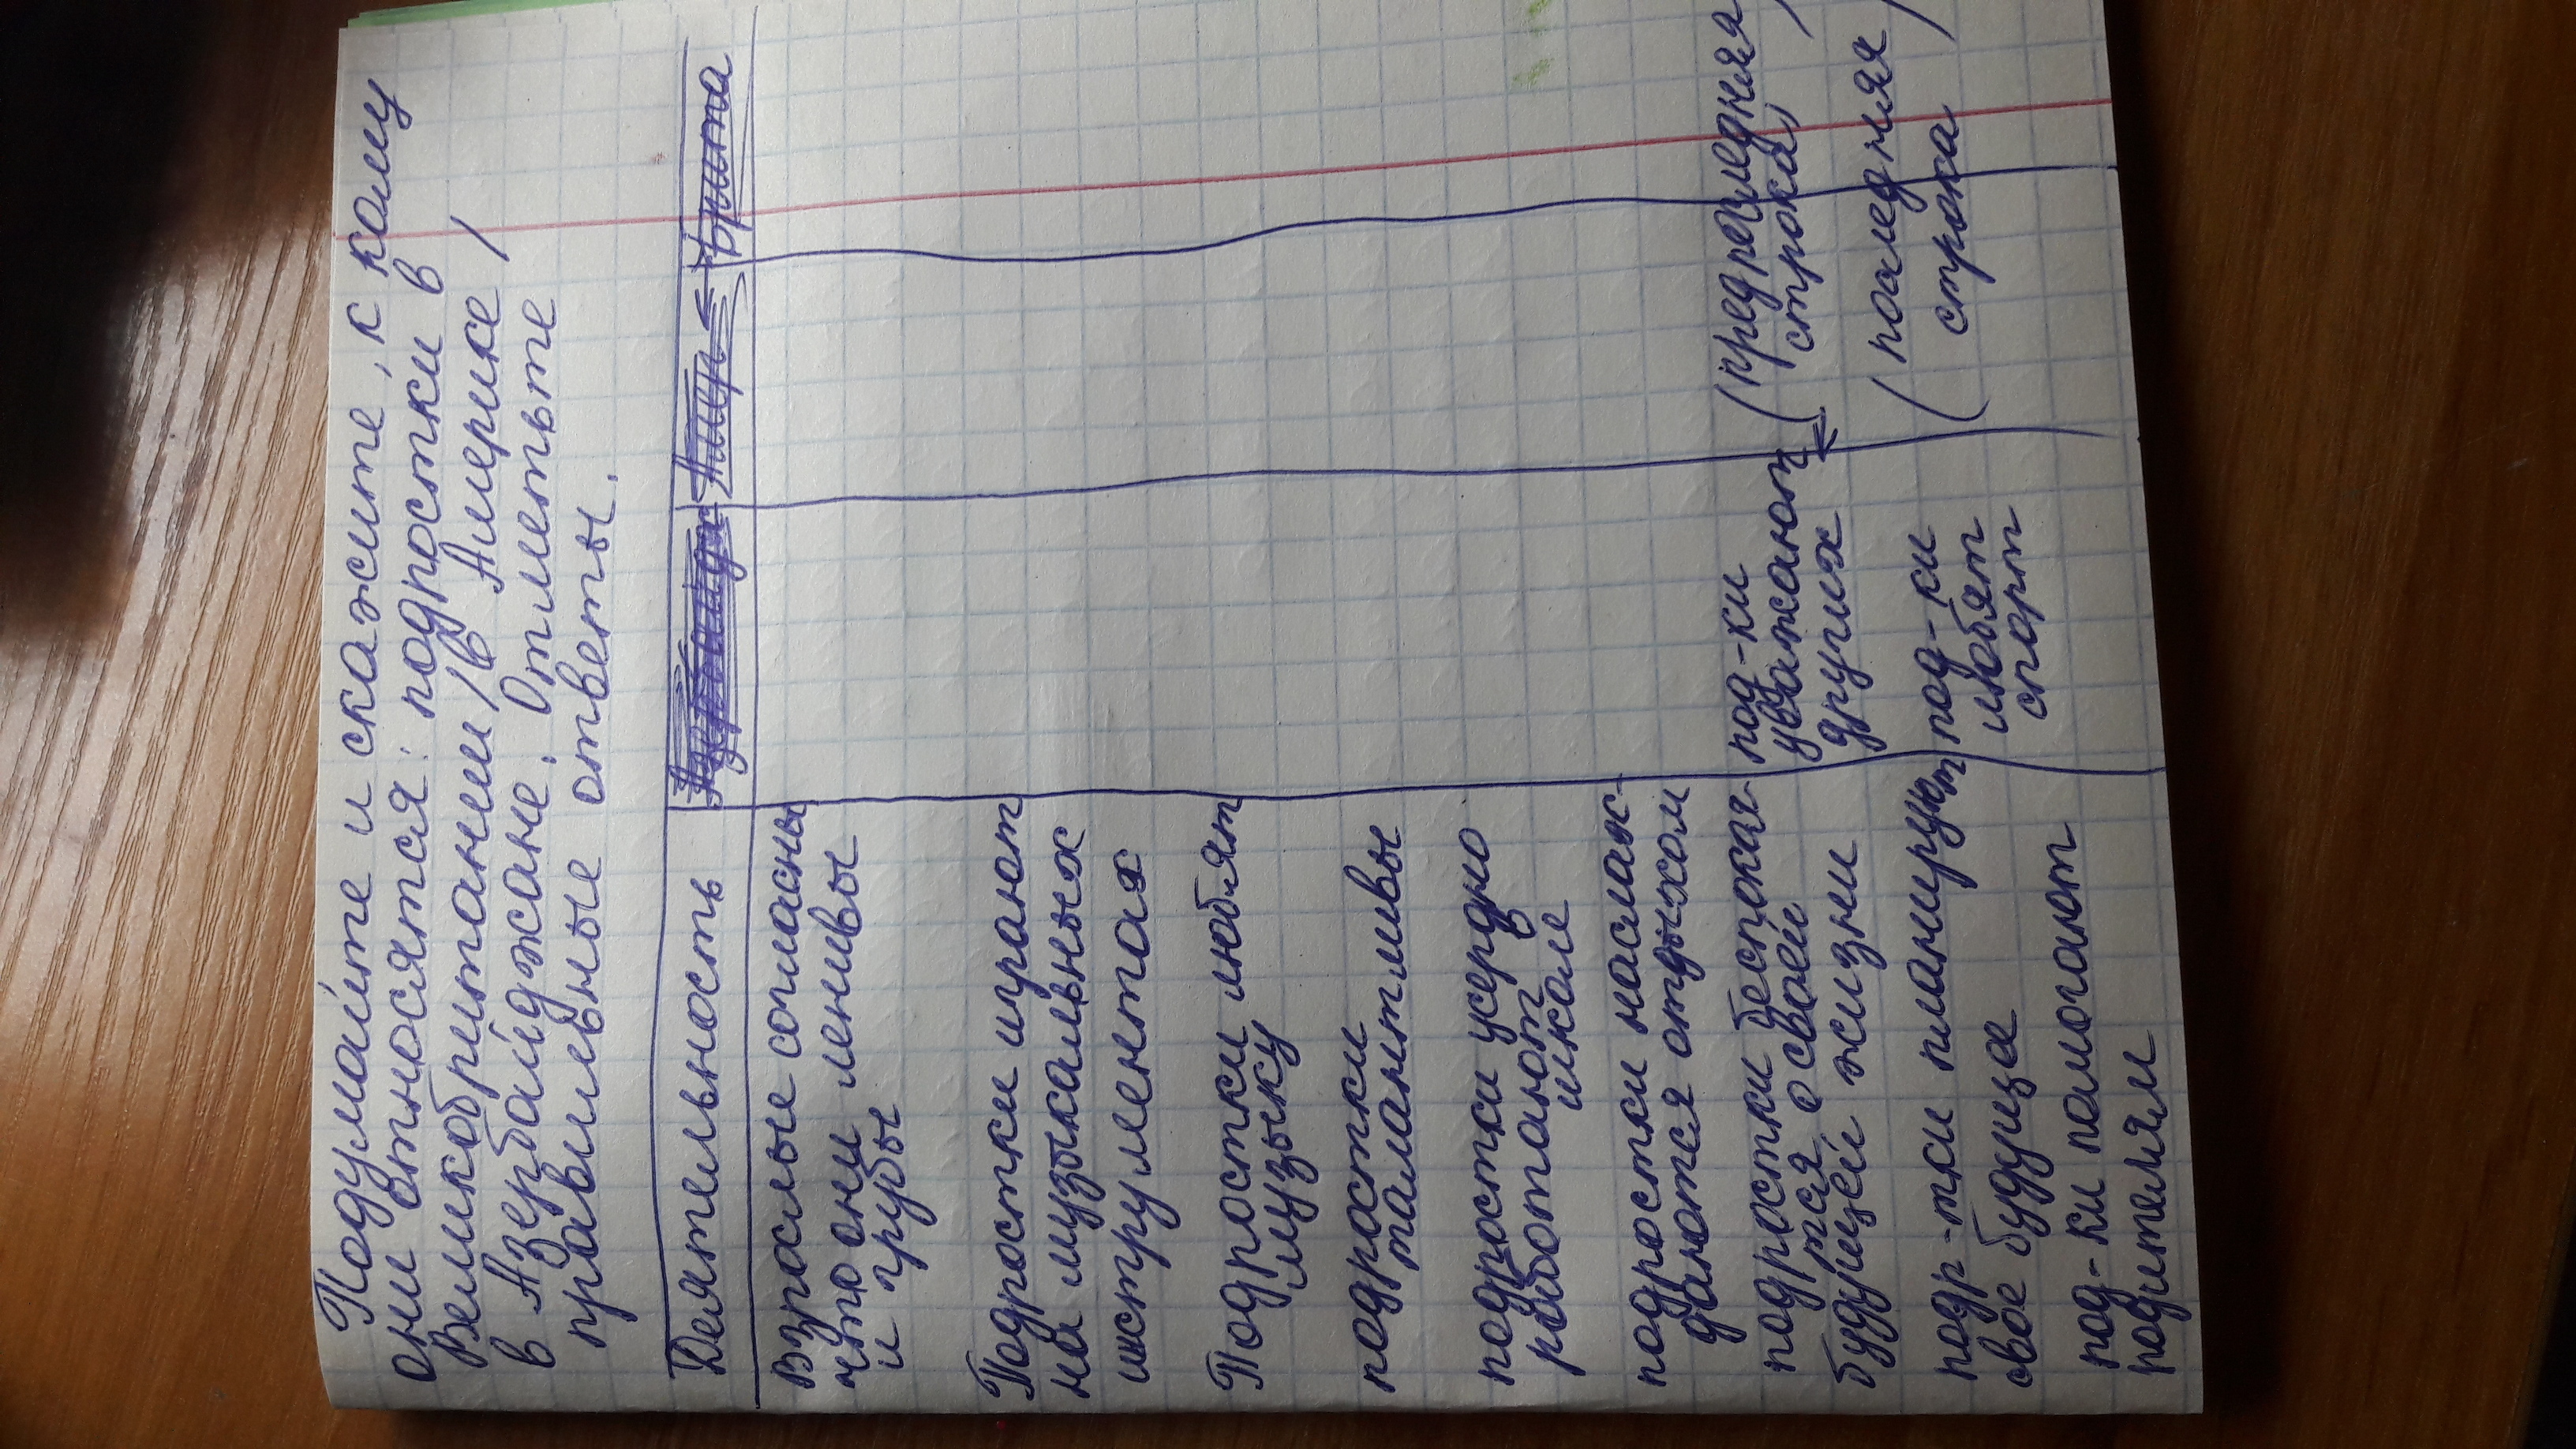 Подумайте и скажите, к кому
они отнюсятся: подростки в
Великобритании /в Америке /
в Азербайджане. Отметьте
правильные ответы.
Деятельность
взрослые согласны
что они ленивы
и грубы
Подростки играют
на музыкальных
инструментах
Подростки любят
музыку
подростки
талантливы
подростки усердно
работают
школе
подростки наслаж-
даются отдыхом
подростки беспокая-
тся о своей
будущей жизни
подр-тки планируют
свое будущее
под-ки помогают
родителям
под-ки
уважают (предпоследняя
других строка)
под-ки (последняя
любят строка)
спорт